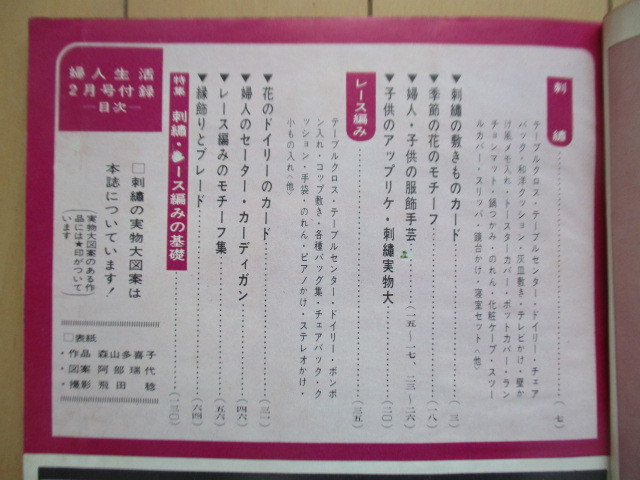 刺繡
テーブルクロス・テーブルセンター・ドイリー・チェア
バック・和洋クッション・灰皿敷き・テレビかけ・壁か
け風メモ入れ・トースターカバー・ポットカバー・ラン
チョンマット・鍋つかみ・のれん・化粧ケープ・スツー
ルカバー・スリッパ・鏡台かけ・寝室セット〈他〉
(七)
▼刺繡の敷きものカード(三)
▼季節の花のモチーフ(一八)
▼婦人・子供の服飾手芸(一五〜一七、二三〜二六)
▼子供のアップリケ・刺繡実物大(二〇)
レース編み(三五)
テーブルクロス・テーブルセンター・ドイリー・ボンボ
ン入れ・コップ敷き・各種バッグ集・チェアバック・ク
ッション・手袋・のれん・ピアノかけ・ステレオかけ・
小もの入れ〈他〉
▼花のドイリーのカード(三一)
▼婦人のセーター・カーディガン(四六)
▼レース編みのモチーフ集(五六)
▼縁飾りとブレード(六四)
特集 刺繡・レース編みの基礎(一三〇)
婦人生活
2月号付録
—目次—
□刺繡の実物大図案は
本誌についています!
(実物大図案のある作
品には★印がついて
います)
□表紙
・作品 森山多喜子
・図案 阿部瑞代
・撮影 飛田 稔